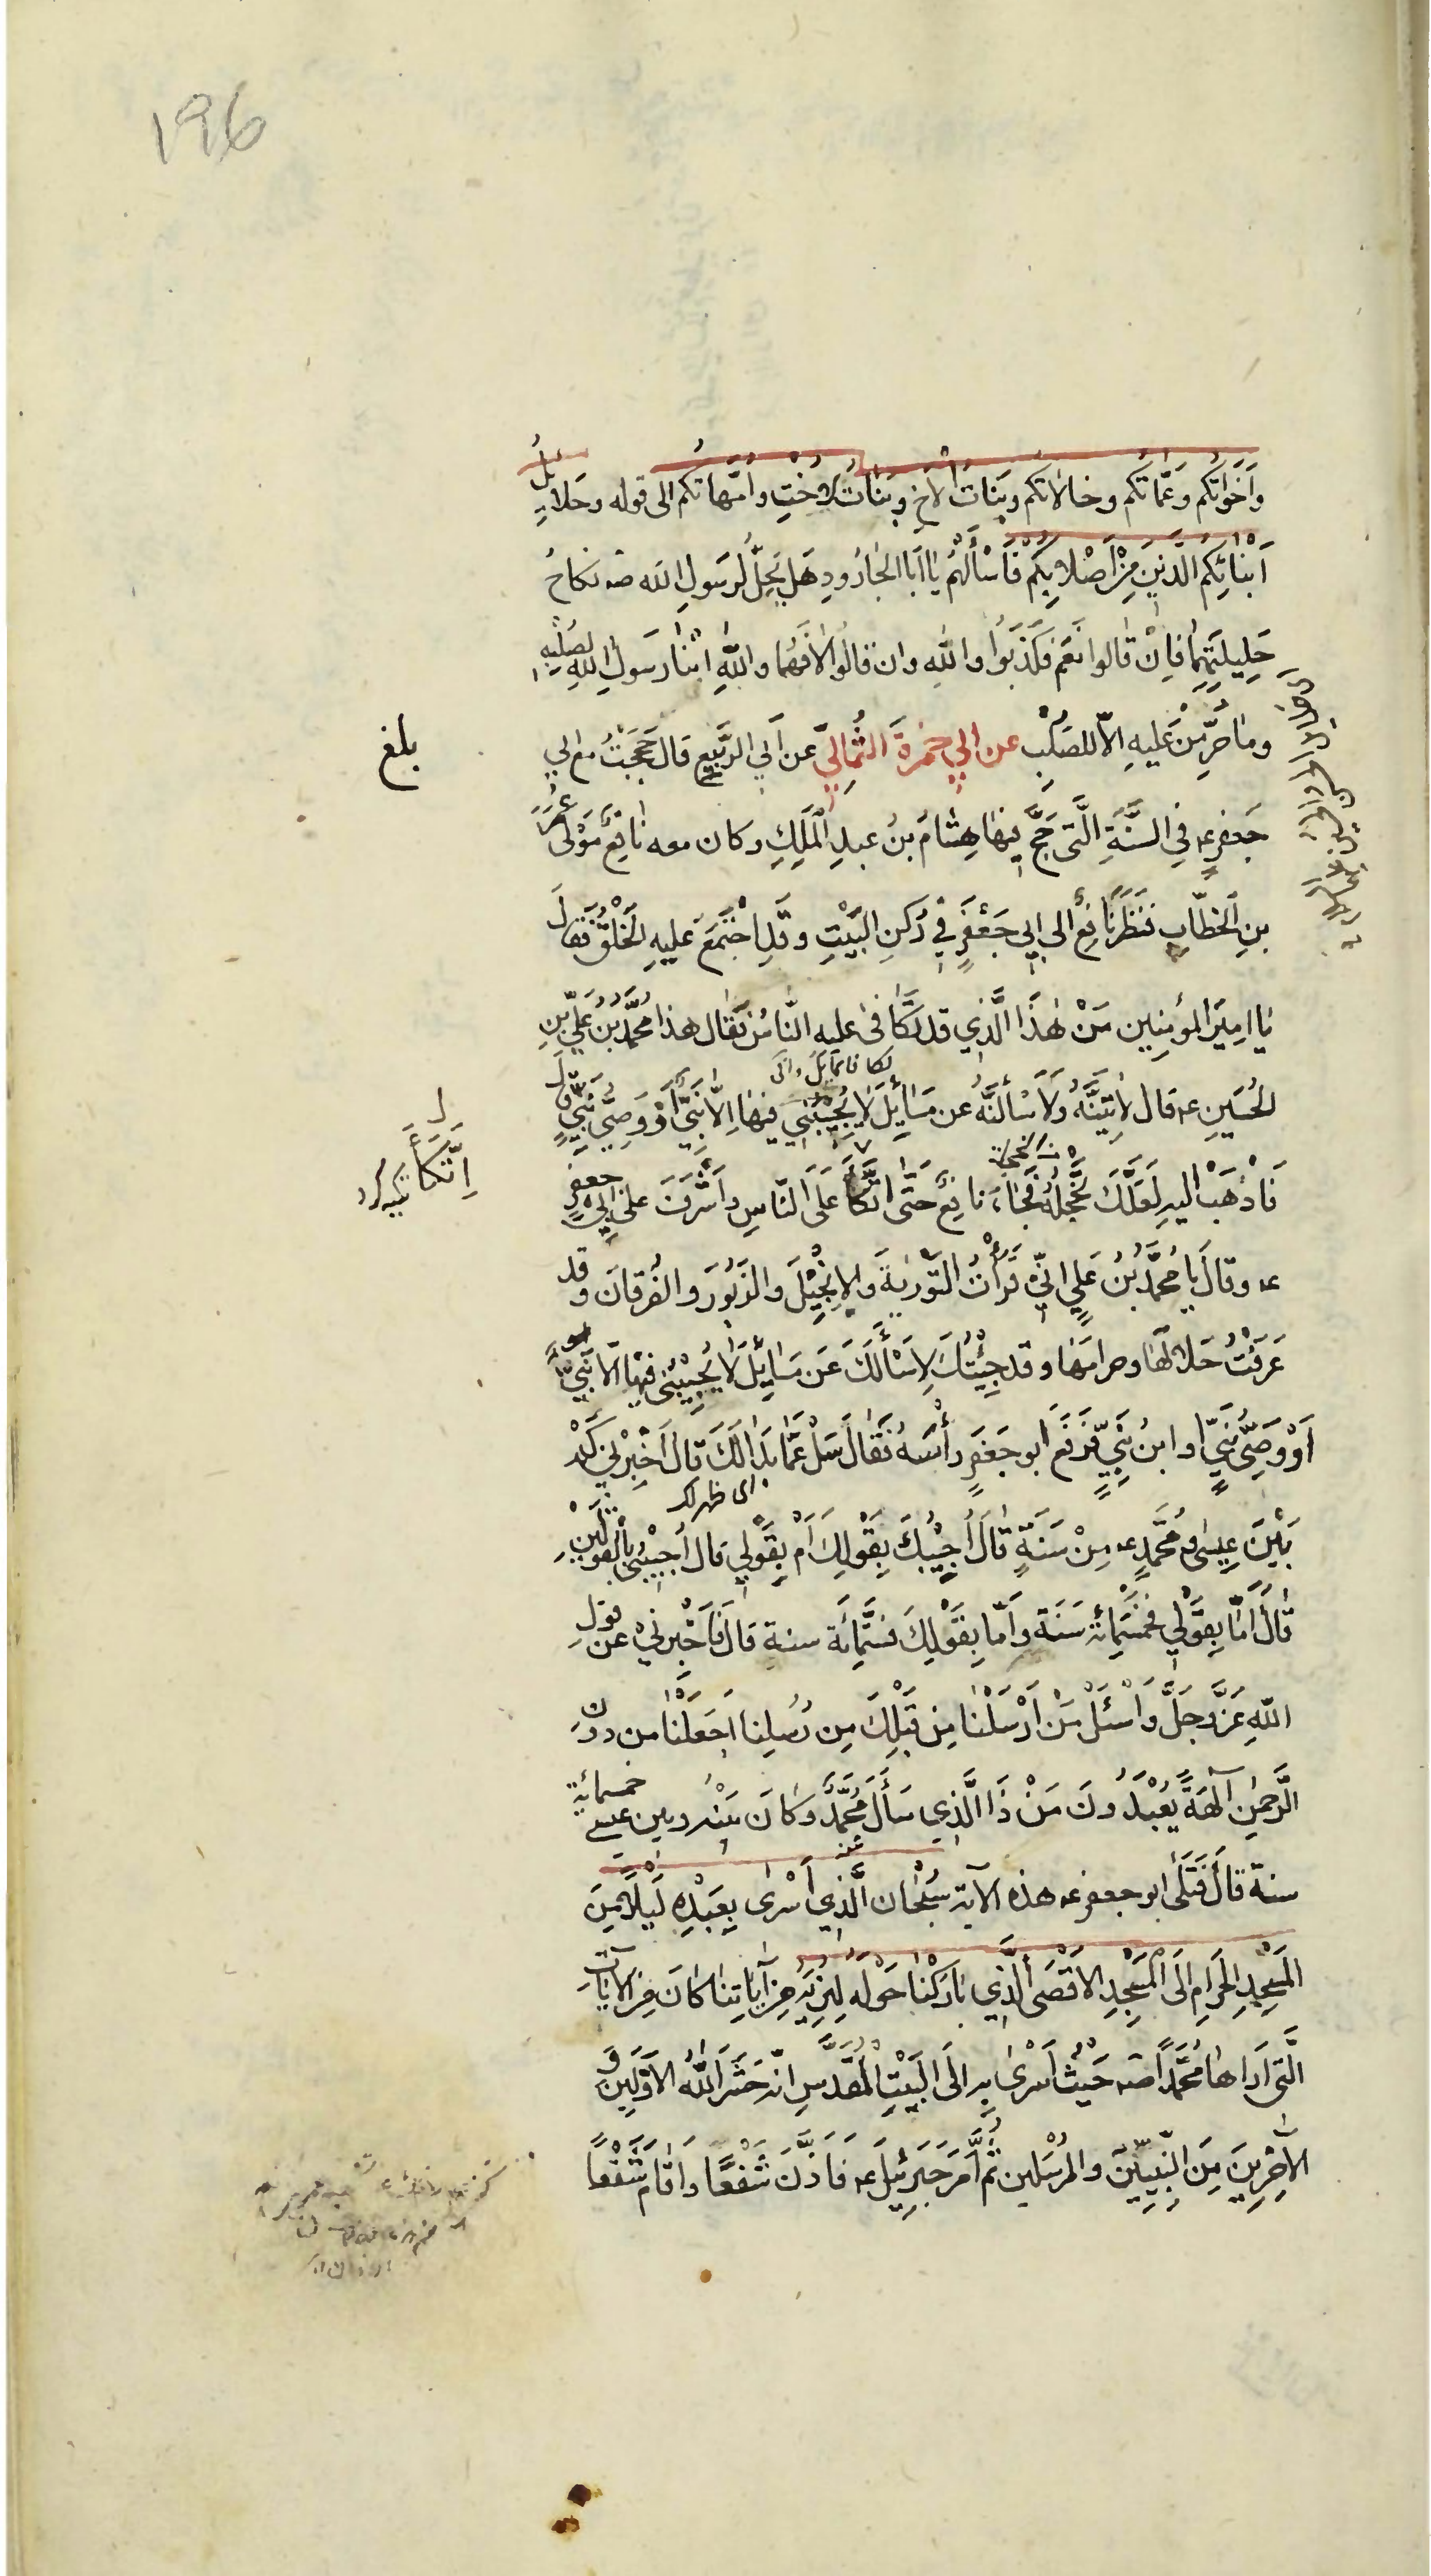 196
وَاَخَوَاتُكُم وَعَمَّاتُكُم وخالاتُكُم وبَنَاتُ الأخِ وبَنَاتُ الاُخْتِ واُمَّهاتُكُم الى قوله وحَلائِلُ
اَبْنَائِكُمُ الَّذينَ مِنْ اَصْلابِكُمْ فَاسْأَلْهُم يا اَبا الجَارُودِ هَل يَحِلُّ لرَسُولِ الله صه نكاحُ
حَلِيلَتَيْهِمَا فاِنْ قالوا نَعَم فكَذَبُوا واللهِ وان قالُوا لا فَهُما واللهِ ابْنَا رَسُولِ اللهِ لصُلْبِهِ
وما حُرِّمْنَ عَليهِ الاّ للصُلْبِ عن ابي حمزةَ الثُمالِيّ عن اَبي الرَّبيعِ قال حَجَجْتُ مع ابي
بلغ
جَعفرٍ عه فِي السَّنَةِ الَّتى حَجَّ فيها هِشامُ بنُ عبدِ المَلِكِ وكان معه نافِعٌ مَوْلى عُمَرَ
بنِ الخطّابِ فنَظَرَ نافِعٌ الى ابي جَعْفَرٍ في رُكنِ البَيْتِ وقَدِ اجْتَمَعَ عَليهِ الخَلْقُ فَقالَ
يا اميرَ المؤمِنِين مَنْ هٰذَا الَّذِي قد تَكَافى عليه النّاسُ فقال هذا مُحَمَّدُ بنُ عَلِيّ بنِ
الحُسَينِ عه قال لآتِيَنَّهُ ولَاَسْأَلَنَّهُ عن مَسَائِلَ لا يُجِيبُنِي فيها اِلاّ نَبِيٌّ أَوْ وَصِيُّ نَبِيٍّ قالَ
فَاذْهَبْ اليهِ لَعَلَّكَ تُخْجِلُهُ فَجَاءَ نافِعٌ حَتَّى اتَّكَأَ عَلَى النّاسِ واَشْرَفَ على ابي جعفرٍ
اِتَّكَأَ
عه وقالَ يا مُحَمَّدُ بْنُ عَلِيٍ انِّي قَرَأْتُ التَّوْريةَ والاِنْجِيْلَ والزَبُورَ والفُرقانَ وقد
عَرَفْتُ حَلالَها وحرامَها وقد جِئْتُكَ لِاَسْأَلَكَ عَن مَسَائِلَ لا يُجِيْبُنِى فيها الّا نَبِيٌّ
اَوْ وَصِيُّ نَبِيٍّ او ابنُ نَبِيٍّ فرَفَعَ ابو جَعْفَرٍ رأسَهُ فَقالَ سَلْ عَمّا بَدا لَكَ قالَ اَخْبِرْنِي كَمْ
اى ظهر لك
بَيْنَ عِيسَى ومُحَمَّدٍ عه مِنْ سَنَةٍ قالَ اُجِيْبُكَ بِقَوْلِكَ اَمْ بِقَوْلِي قال اُجِبْنِى بالقَوْلَيْنِ
قالَ اَمّا بِقَوْلِي فخَمْسُمِائة سَنَة واَمّا بِقَوْلِكَ فستُّمِائَة سنةٍ قالَ فَاَخْبِرني عن قولِ
اللهِ عَزَّ وجلَّ وَاسْئَلْ مَنْ اَرْسَلْنَا مِن قَبْلِكَ مِن رُسُلِنا اَجَعَلْنَا من دونِ
الرَّحمٰنِ آلهةً يُعْبَدُونَ مَنْ ذَا الَّذِي سَأَلَ مُحَمَّدٌ وَكانَ بَيْنَه وبين عيسى خمسمائةِ
سنة قال فَتَلَى ابو جعفر عه هذه الآية سُبْحَان الَّذِي أَسْرى بِعَبْدِهِ لَيْلًا مِنَ
المَسْجِدِ الحَرَامِ اِلَى المَسْجِدِ الاَقْصَى الَّذِي بَارَكْنَا حَوْلَهُ لِنُرِيَهُ مِن آياتِنا كانَ مِنَ الآياتِ
الَّتِى اَراها مُحَمَّداً صه حَيْثُ اَسْرىٰ به الَى البَيْتِ المُقَدَّسِ انّه حَشَرَ اللهُ الاَوَّلِينَ و
الآخِرِينَ مِنَ النَّبِيِّينَ والمُرْسَلين ثُمَّ اَمَرَ جَبْرَئِيلَ عه فَاَذَّنَ شَفْعًا واَقامَ شَفْعاً